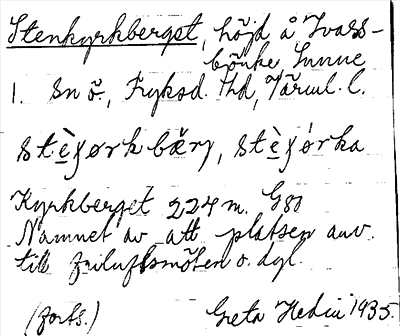 Stenkyrkberget, höjd å Ivars-
bönke, Sunne
1. Sn ö., Fryksd. Hd, Värml. l.
stè̱ʃørkbærj, stè̱ʃørka
Kyrkberget 224 m. G80
Namnet av att platsen anv.
till friluftsmöten o. dyl.
(forts.) Greta Hedin 1935.